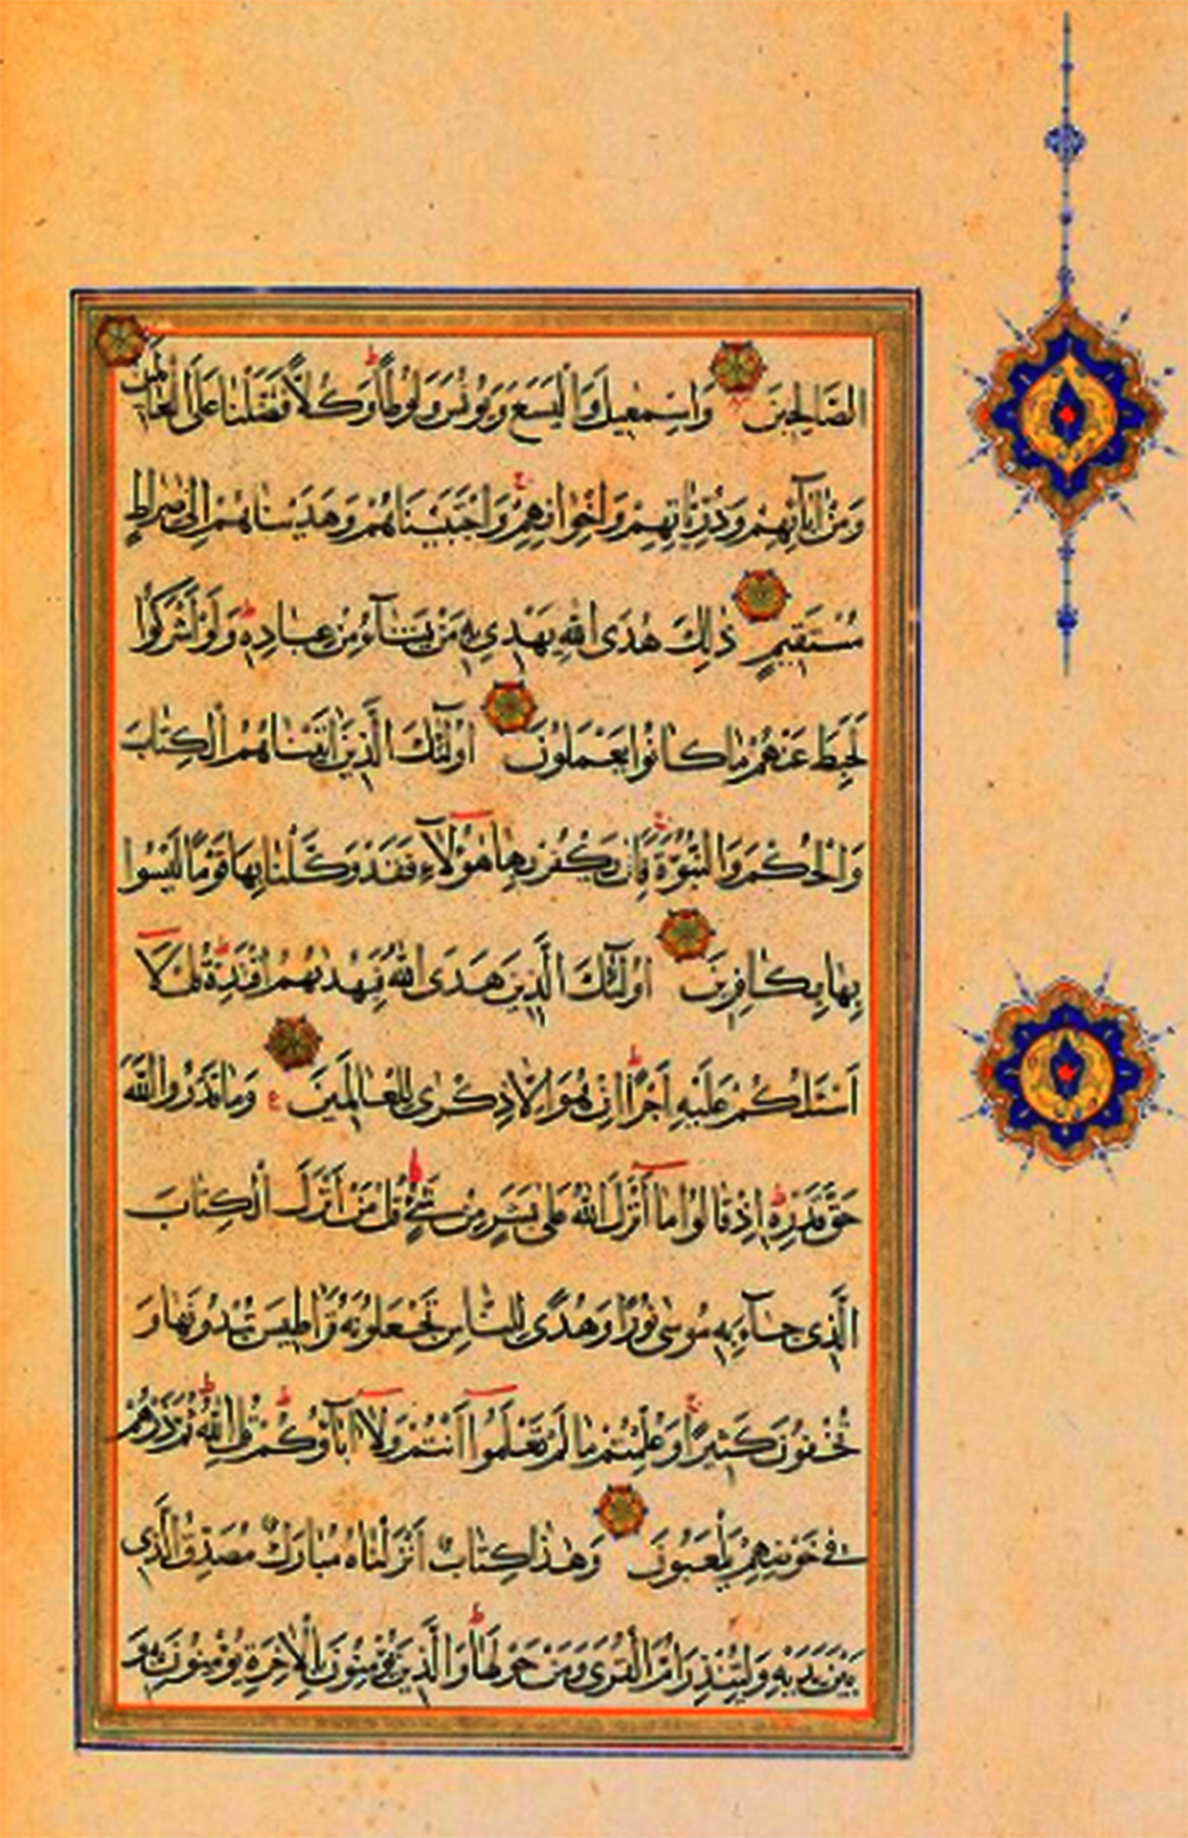 الصَّالِحِينَ وَاِسْمٰعِيلَ وَالْيَسَعَ وَيُونُسَ وَلُوطًا ط وَكُلًّا فَضَّلْنَا عَلَى الْعَالَمِينَ
وَمِنْ اٰبَآئِهِمْ وَذُرِّيَّاتِهِمْ وَاِخْوَانِهِمْ ج وَاجْتَبَيْنَاهُمْ وَهَدَيْنَاهُمْ اِلٰى صِرَاطٍ
مُسْتَقِيمٍ ذٰلِكَ هُدَى اللّٰهِ يَهْدِى بِهٖ مَنْ يَشَآءُ مِنْ عِبَادِهٖ ط وَلَوْ اَشْرَكُوا
لَحَبِطَ عَنْهُمْ مَا كَانُوا يَعْمَلُونَ اُولٰٓئِكَ الَّذِينَ اٰتَيْنَاهُمُ الْكِتَابَ
وَالْحُكْمَ وَالنُّبُوَّةَ ج فَاِنْ يَكْفُرْ بِهَا هٰٓؤُلَآءِ فَقَدْ وَكَّلْنَا بِهَا قَوْمًا لَيْسُوا
بِهَا بِكَافِرِينَ اُولٰٓئِكَ الَّذِينَ هَدَى اللّٰهُ فَبِهُدٰيهُمُ اقْتَدِهْ ط قُلْ لَآ
اَسْئَلُكُمْ عَلَيْهِ اَجْرًا ط اِنْ هُوَ اِلَّا ذِكْرٰى لِلْعَالَمِينَ ع وَمَا قَدَرُوا اللّٰهَ
حَقَّ قَدْرِهٖ ط اِذْ قَالُوا مَآ اَنْزَلَ اللّٰهُ عَلٰى بَشَرٍ مِنْ شَىْءٍ ط قُلْ مَنْ اَنْزَلَ الْكِتَابَ
الَّذِى جَآءَ بِهٖ مُوسٰى نُورًا وَهُدًى لِلنَّاسِ تَجْعَلُونَهُ قَرَاطِيسَ تُبْدُونَهَا وَ
تُخْفُونَ كَثِيرًا ج وَعُلِّمْتُمْ مَا لَمْ تَعْلَمُوآ اَنْتُمْ وَلَآ اٰبَآؤُكُمْ ط قُلِ اللّٰهُ ط ثُمَّ ذَرْهُمْ
فِى خَوْضِهِمْ يَلْعَبُونَ وَهٰذَا كِتَابٌ اَنْزَلْنَاهُ مُبَارَكٌ مُصَدِّقُ الَّذِى
بَيْنَ يَدَيْهِ وَلِتُنْذِرَ اُمَّ الْقُرٰى وَمَنْ حَوْلَهَا ط وَالَّذِينَ يُؤْمِنُونَ بِالْاٰخِرَةِ يُؤْمِنُونَ بِهٖ وَ